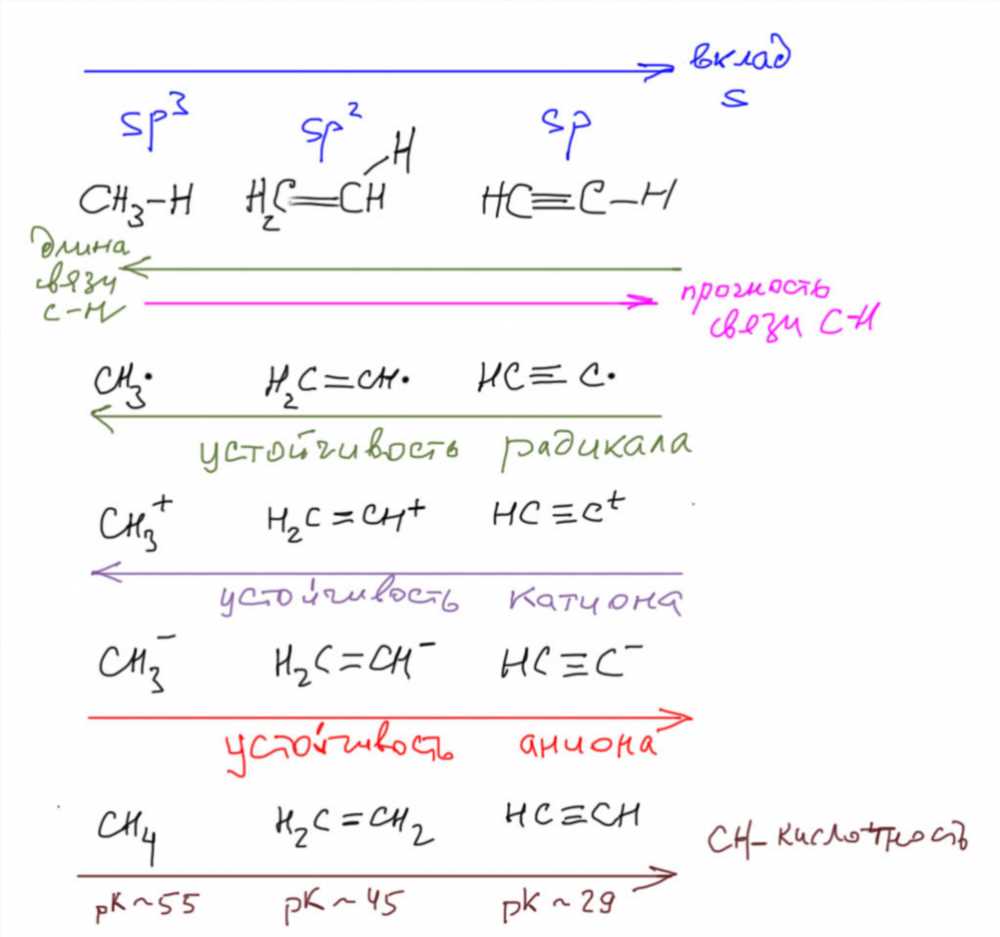 вклад
s
sp³ sp² sp
CH₃–H H₂C=CH–H HC≡C–H
длина
связи
C–H
прочность
связи C–H
CH₃• H₂C=CH• HC≡C•
устойчивость радикала
CH₃⁺ H₂C=CH⁺ HC≡C⁺
устойчивость катиона
CH₃⁻ H₂C=CH⁻ HC≡C⁻
устойчивость аниона
CH₄ H₂C=CH₂ HC≡CH
CH–кислотность
pK~55 pK~45 pK~29